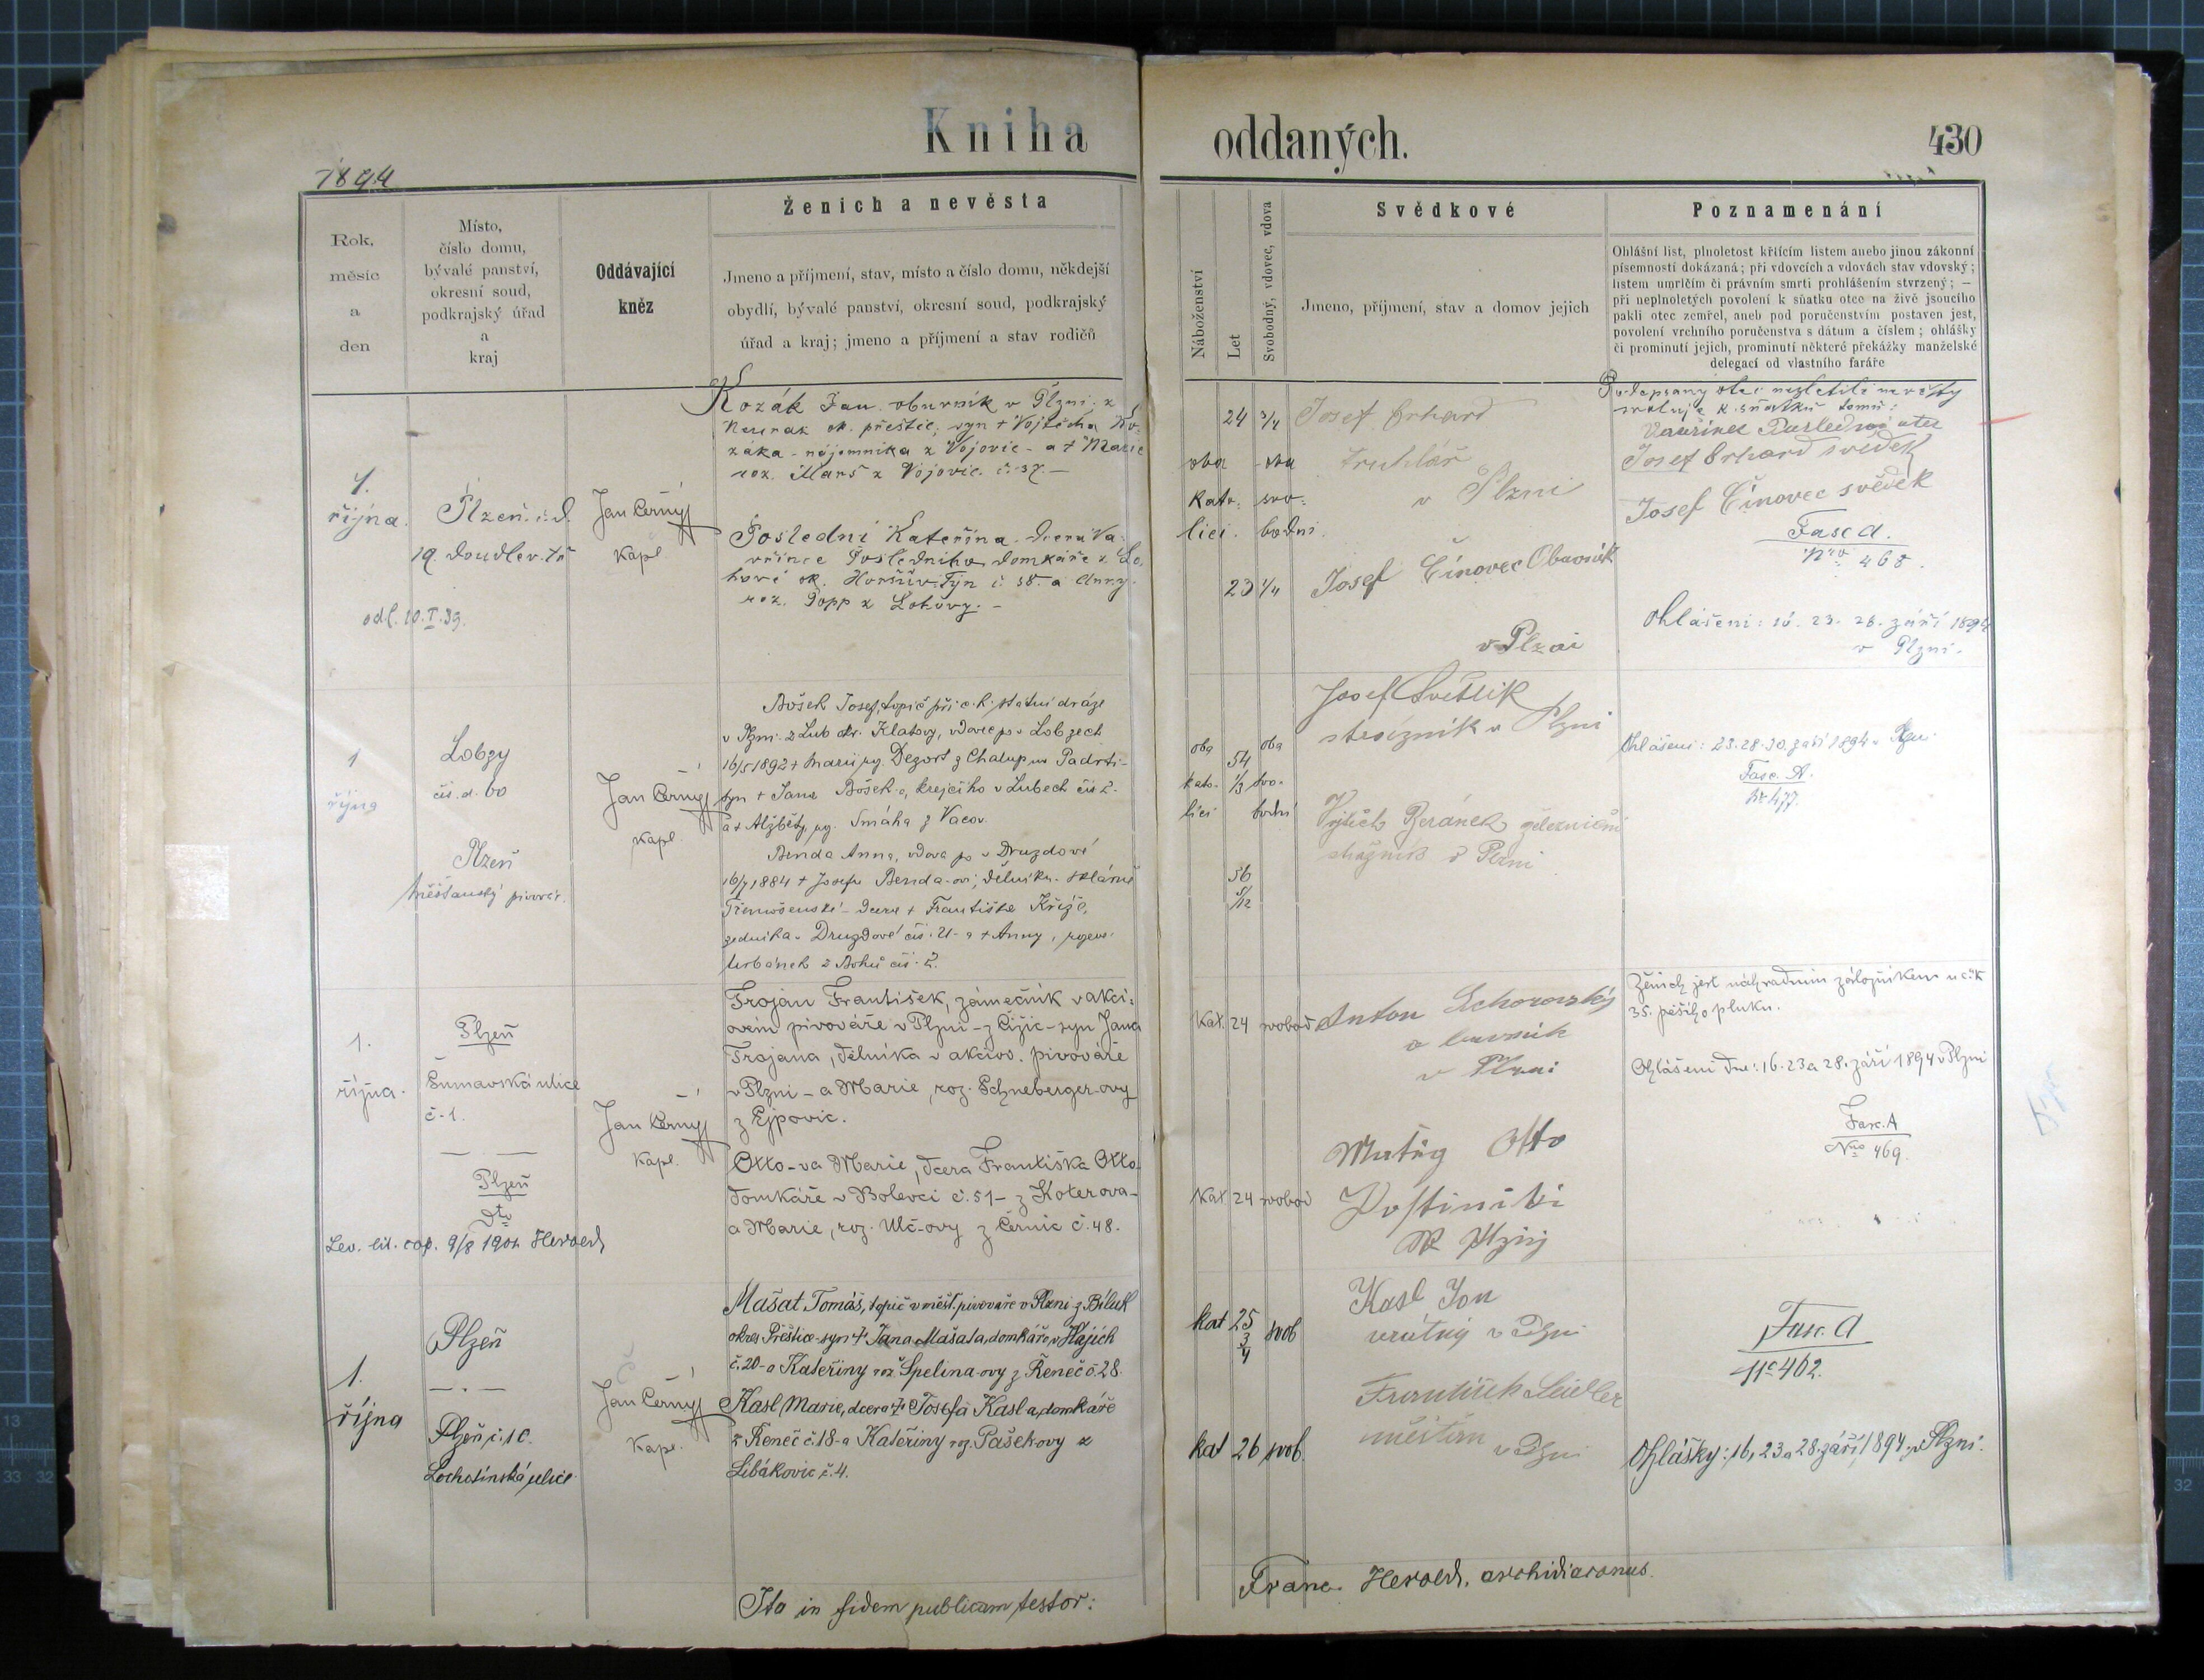 Kniha oddaných.
430
1894
Rok,
měsíc
a
den
Místo,
číslo domu,
bývalé panství,
okresní soud,
podkrajský úřad
a
kraj
Oddávající
kněz
Ženich a nevěsta
Jmeno a příjmení, stav, místo a číslo domu, někdejší
obydlí, bývalé panství, okresní soud, podkrajský
úřad a kraj; jmeno a příjmení a stav rodičů
Náboženství
Let
Svobodný, vdovec, vdova
Svědkové
Jmeno, příjmení, stav a domov jejich
Poznamenání
Ohlášní list, plnoletost křtícím listem anebo jinou zákonní
písemností dokázaná; při vdovcích a vdovách stav vdovský;
listem umrlčím či právním smrti prohlášením stvrzený; —
při neplnoletých povolení k sňatku otce na živě jsoucího
pakli otec zemřel, aneb pod poručenstvím postaven jest,
povolení vrchního poručenstva s dátum a číslem; ohlášky
či prominutí jejich, prominutí některé překážky manželské
delegací od vlastního faráře
1.
října.
Plzeň. č. d.
19. Doudlev. tř
odl. 10.I.39.
Jan Černý
Kapl
Kozák Jan. obuvník v Plzni; z
ok. přeštic; syn + Vojtěcha Ko-
záka - nájemníka z Vojovic - a + Marie
roz. Marš z Vojovic. č. 37. —
Poslední Kateřina. dcera Va-
vřince Posledního domkáře z Lo-
hové ok. Horšův. Týn č. 38. a Anny.
roz. Popp z Lohovy. -
oba
kato-
lící.
24 3/4
23 1/4
oba
svo-
bodni.
Josef Erhard
truhlář
v Plzni
Josef Čínovec Obuvník
v Plzni
Podepsaný otec nezletilé nevěsty
svoluje k sňatku tomu:
Vavřinec Poslední otec
Josef Erhard svědek
Josef Čínovec svědek
Fasc A.
Nro 468.
Ohlášeni: 16. 23. 28. září 1894
v Plzni.
1
října
Lobzy
čís. d. 60
Plzeň
Měšťanský pivovár.
Jan Černý
kapl.
Bošek Josef, topič při c. k. státní dráze
v Plzni. z Lub okr. Klatovy, vdovec po v Lobzech
16/5 1892 + Marii roz. Dezort z Chalup na Padrti-
syn + Jana Bošek-a, krejčího v Lubech čís 2.
a + Alžběty, roz. Smáha z Vacov.
Benda Anna, vdova po v Druzdové
16/7 1884 + Josefu Benda-ovi, dělníku sklárně
Třemošenské - dcera + Františka Kříže,
zedníka v Druzdové čís. 21 - a + Anny, rozené
Urbánek z
oba
kato-
lící
54
1/3
56
5/12
oba
svo-
bodní
Josef Světlík
strážník v Plzni
Vojtěch Beránek železniční
strážník v Plzni
Ohlášeni: 23. 28. 30. září 1894 v Plzni
Fasc. A.
Nr 477.
1.
října.
Plzeň
Šumavská ulice
č. 1.
Plzeň
dto
Lev. lit. cop. 9/8 1901 Herold
Jan Černý
Kapl.
Trojan František, zámečník v akci-
ovém pivováře v Plzni - z Čižic - syn Jana
Trojana, dělníka v akciov. pivováře
v Plzni - a Marie, roz. Schneberger-ovy
z Ejpovic.
Otto-va Marie, dcera Františka Otto
domkáře v Bolevci č. 51 - z Koterova -
a Marie, roz. Ulč-ovy z Černic č. 48.
Kat. 24 svobod
Kat. 24 svobod
Anton
obuvník
v Plzni
Matěj Otto
v Plzni
Ženich jest náhradním záložníkem u c. k.
35. pěšího pluku.
Ohlášeni dne: 16. 23 a 28. září 1894 v Plzni
Fasc. A
Nro 469.
1.
října
Plzeň
Plzeň č. 10.
Lochotínská ulice
Jan Černý
Kapl.
Mašat Tomáš, topič v měšť. pivováře v Plzni z Biluk
okres Přeštice - syn + Jana Mašata, domkáře v Hájích
č. 20 - a Kateřiny roz. Spelina-ovy z Řeneč č. 28.
Kasl Marie, dcera + Josefa Kasl a, domkáře
z Řeneč č. 18 - a Kateřiny roz. Pašekovy z
Libákovic č. 4.
kat 25 3/4 svob
kat 26 svob.
Kasl Jan
vrátný v Plzni
František Seidler
měšťan v Plzni
Fasc. A
No 462.
Ohlášky: 16, 23 a 28. září 1894 v Plzni.
Ita in fidem publicam testor:
Franc. Herold, archidiaconus.